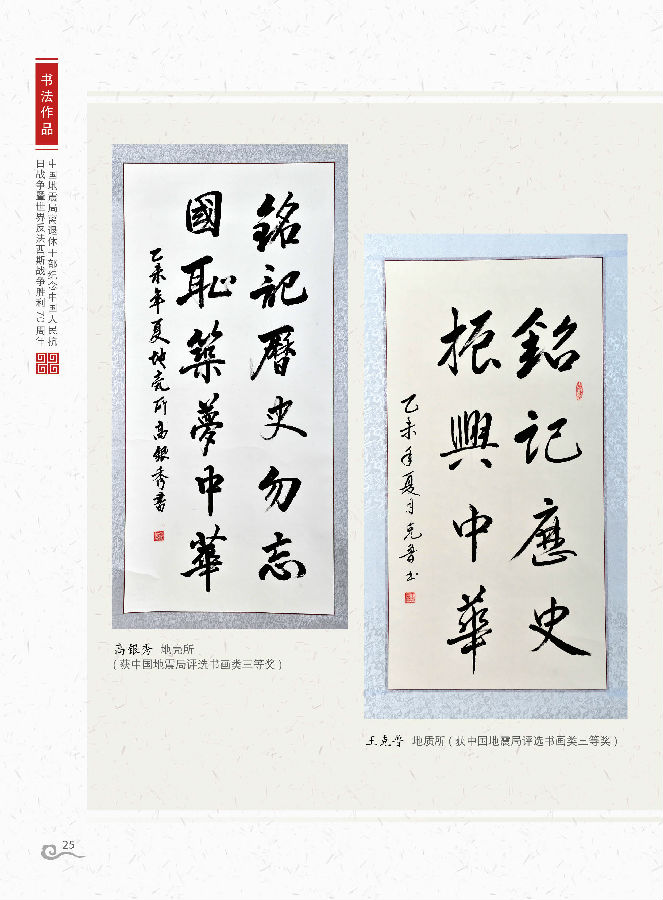 书法作品
中国地震局离退休干部纪念中国人民抗
日战争暨世界反法西斯战争胜利70周年
銘記曆史勿忘
國恥築夢中華
乙未年夏地壳所高银秀書
高银秀 地壳所
(获中国地震局评选书画类三等奖)
銘記歷史
振興中華
乙未年夏月克普书
王克普 地质所(获中国地震局评选书画类三等奖)
25